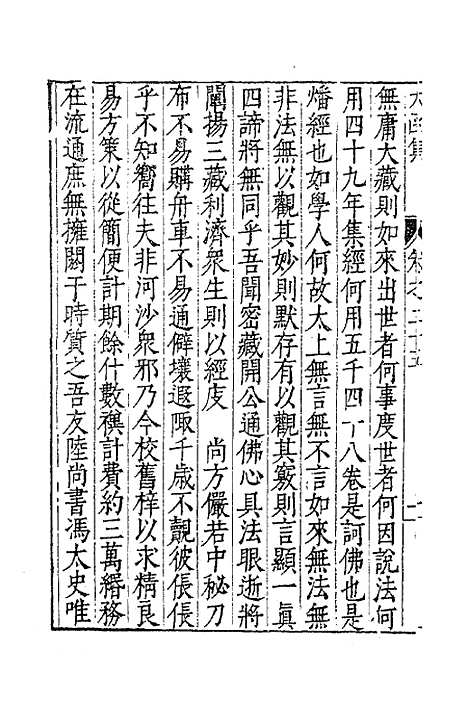 太函集　卷之二十五
無庸大藏則如來出世者何事度世者何因說法何
用四十九年集經何用五千四十八卷是訶佛也是
燔經也如學人何故太上無言無不言如來無法無
非法無以觀其妙則默存有以觀其竅則言顯一眞
四諦將無同乎吾聞密藏開公通佛心具法眼逝將
闡揚三藏利濟衆生則以經庋　尚方儼若中秘刀
布不易購舟車不易通僻壤遐陬千歳不覿彼倀倀
乎不知嚮往夫非河沙衆邪乃今校舊梓以求精良
易方策以從簡便計期餘什數襈計費約三萬緡務
在流通庶無擁閼于時質之吾友陸尚書馮太史唯